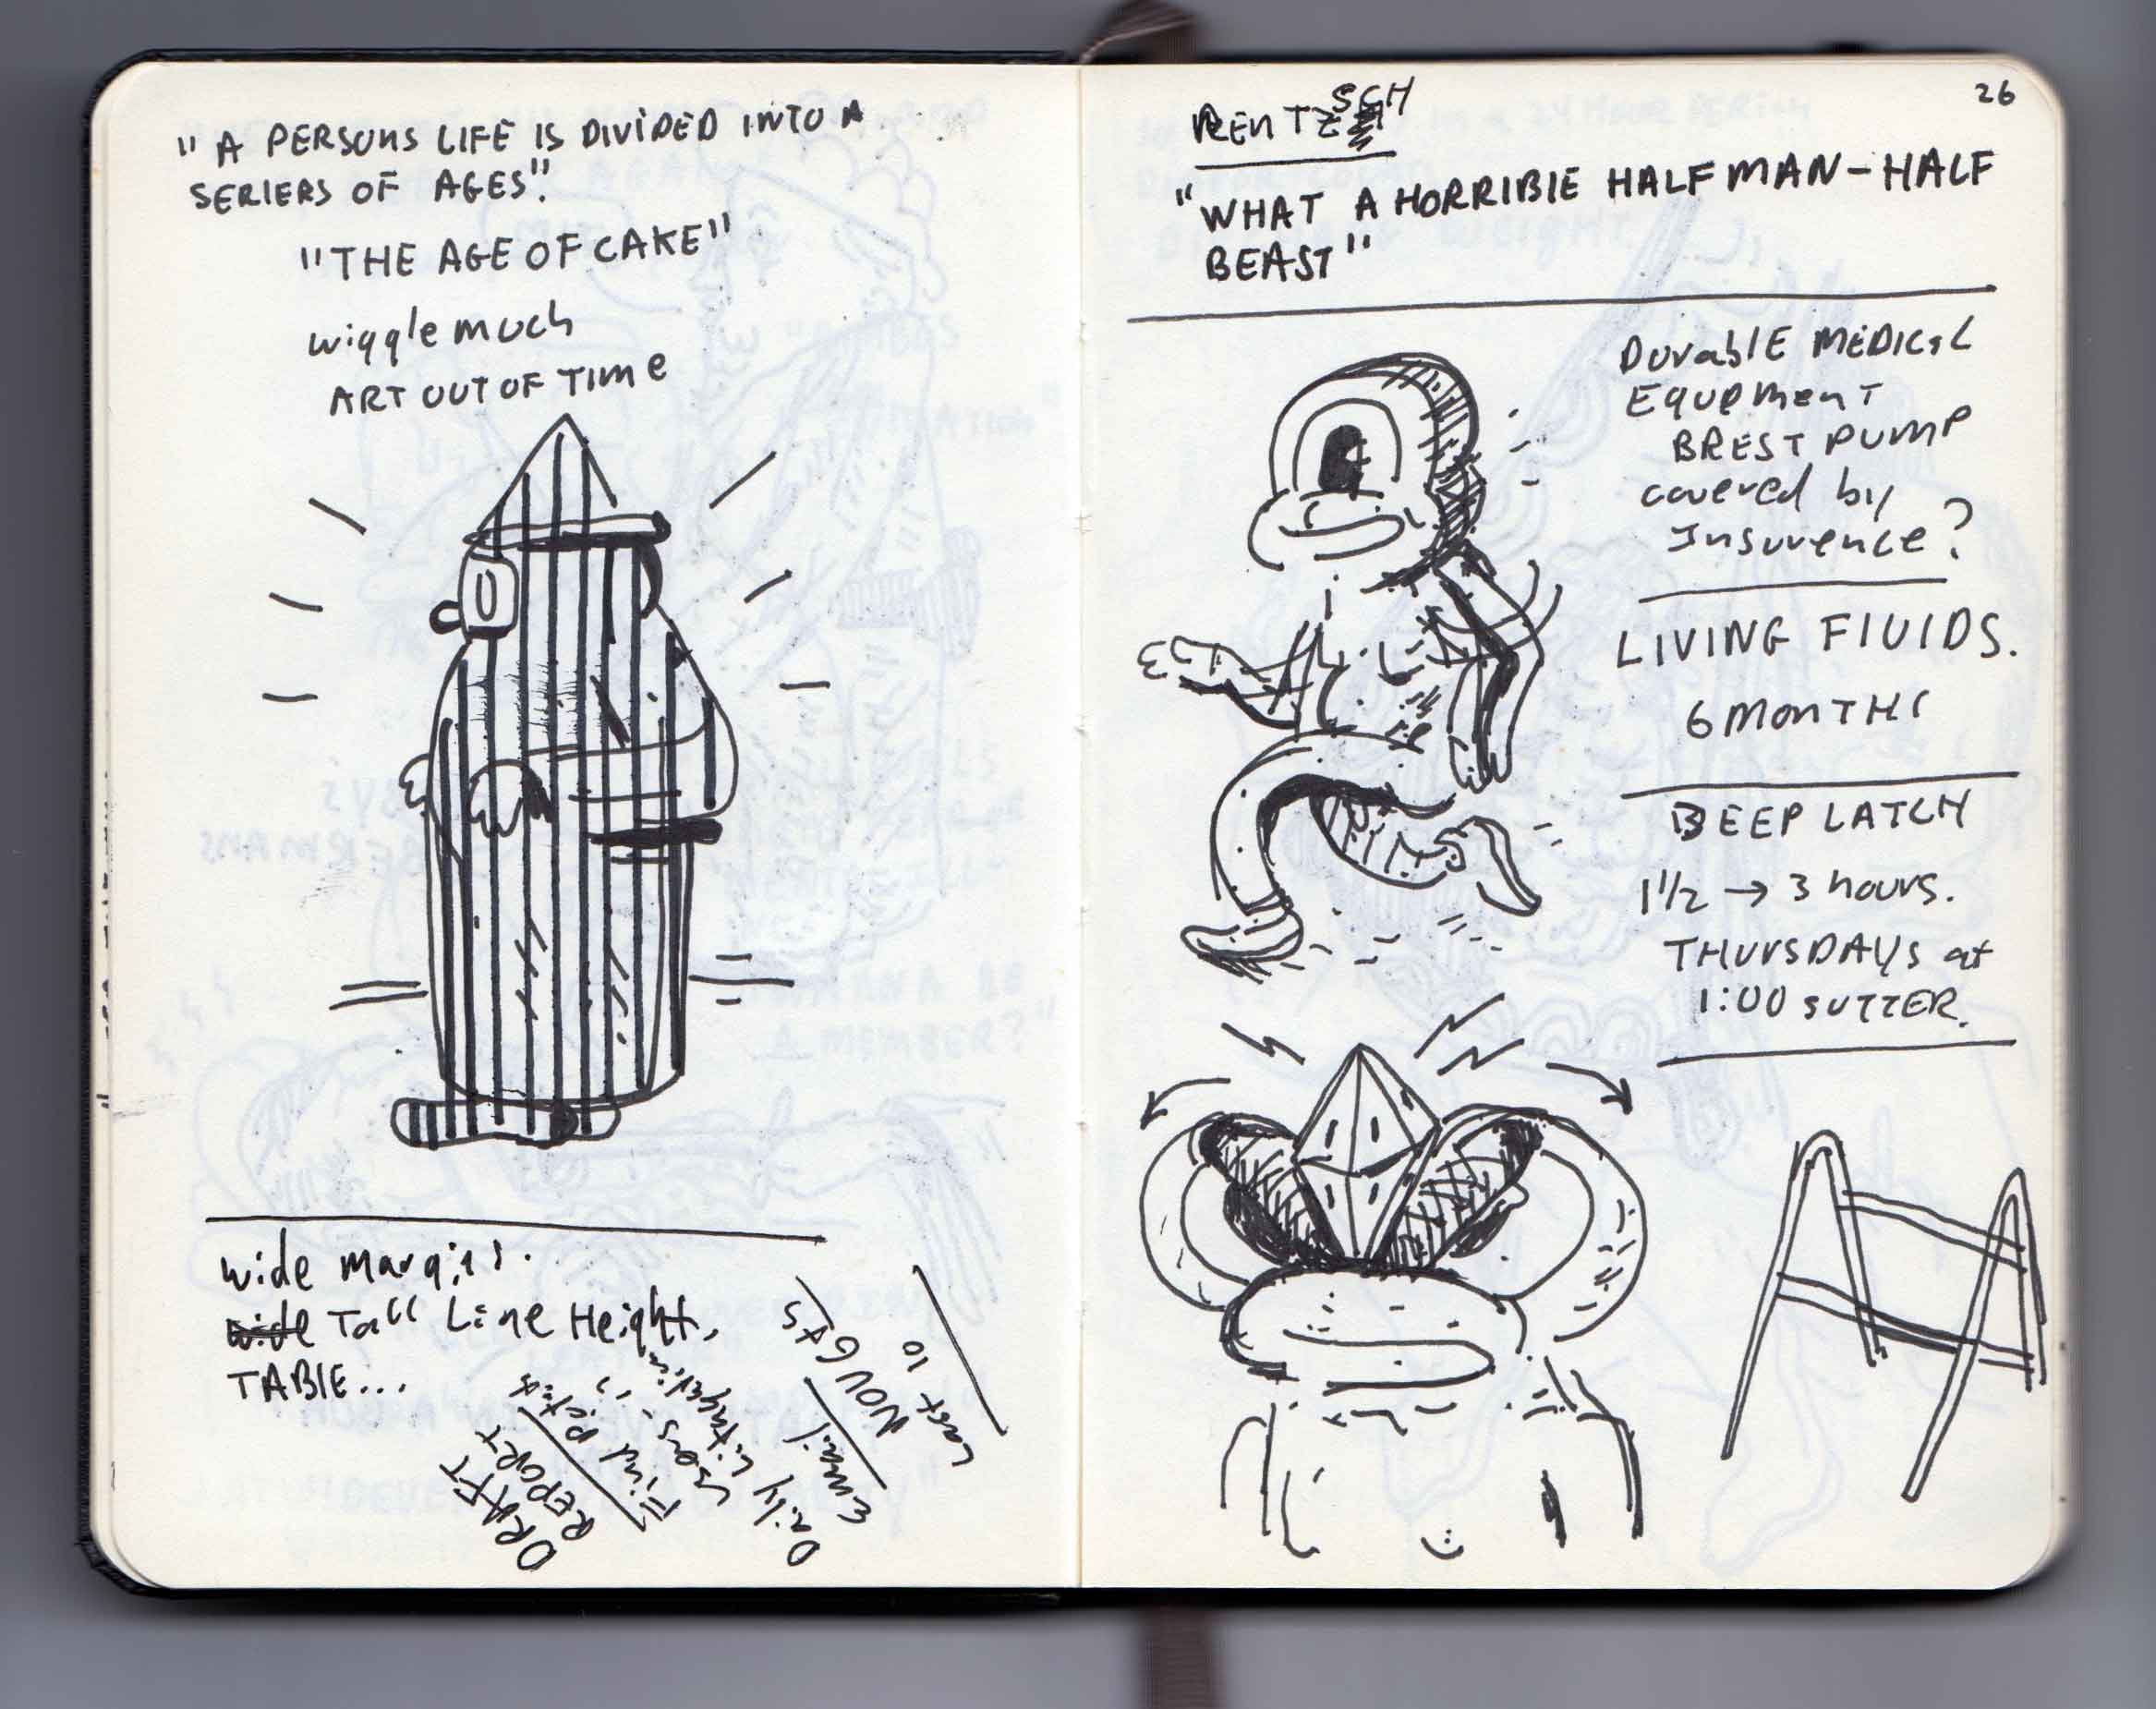 "A PERSONS LIFE IS DIVIDED INTO A
SERIERS OF AGES".
"THE AGE OF CAKE"
wiggle much
ART OUT OF TIME
wide margins.
wide Tall Line Height,
TABLE...
DRAFT
REPORT
Find Pictures
users.
Daily Lit
Email
NOUGATS
Last 10
26
RENTZSCH
"WHAT A HORRIBLE HALF MAN-HALF
BEAST"
Durable MEDICAL
EquPMenT
BREST PUMP
covered by
Insurence?
LIVING FLUIDS.
6 MONTHS
BEEP LATCH
1 1/2 → 3 hours.
THURSDAYS at
1:00 SUTTER.